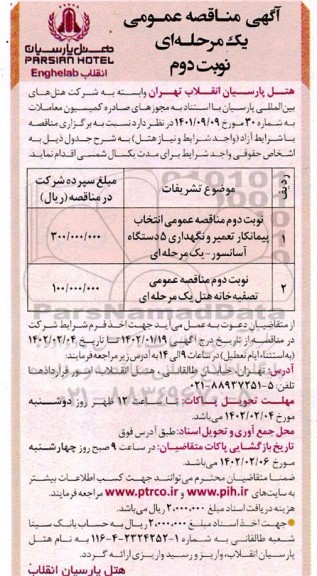 آگهی مناقصه عمومی
یک مرحله‌ای
نوبت دوم
هتل پارسیان
PARSIAN HOTEL
Enghelab انقلاب
هتل پارسیان انقلاب تهران وابسته به شرکت هتل‌های
بین‌المللی پارسیان با استناد به مجوزهای صادره کمیسیون معاملات
به شماره ۳۰ مورخ ۱۴۰۱/۰۹/۰۹ در نظر دارد نسبت به برگزاری مناقصه
با شرایط آزاد (واجد شرایط و نیاز هتل) به شرح جدول ذیل به
اشخاص حقوقی واجد شرایط برای مدت یکسال شمسی اقدام نماید.
ردیف
موضوع تشریفات
مبلغ سپرده شرکت
در مناقصه (ریال)
۱
نوبت دوم مناقصه عمومی انتخاب
پیمانکار تعمیر و نگهداری ۵ دستگاه
آسانسور - یک مرحله ای
۳۰۰/۰۰۰/۰۰۰
۲
نوبت دوم مناقصه عمومی
تصفیه خانه هتل یک مرحله ای
۱۰۰/۰۰۰/۰۰۰
از متقاضیان دعوت به عمل می‌آید جهت اخذ فرم شرایط شرکت
در مناقصه از تاریخ درج آگهی ۱۴۰۲/۰۱/۱۹ تا تاریخ ۱۴۰۲/۰۲/۰۴
(به استثناء ایام تعطیل) در ساعات ۹ الی ۱۴ به آدرس زیر مراجعه فرمایند:
آدرس: تهران، خیابان طالقانی، هتل انقلاب امور قراردادها
تلفن: ۵-۸۸۹۳۷۲۵۱-۰۲۱
مهلت تحویل پاکات: تا ساعت ۱۲ ظهر روز دوشنبه
مورخ ۱۴۰۲/۰۲/۰۴ می‌باشد.
محل جمع آوری و تحویل اسناد: طبق آدرس فوق
تاریخ بازگشایی پاکات متقاضیان: در ساعت ۹ صبح روز چهارشنبه
مورخ ۱۴۰۲/۰۲/۰۶ می‌باشد.
ضمنا متقاضیان محترم می‌توانند جهت کسب اطلاعات بیشتر
به سایت‌های www.pih.ir و www.ptrco.ir مراجعه فرمایند.
هزینه دریافت اسناد مبلغ ۲.۰۰۰.۰۰۰ ریال می‌باشد.
جهت اخذ اسناد مبلغ ۲.۰۰۰.۰۰۰ ریال به حساب بانک سینا
شعبه طالقانی به شماره ۱-۲۲۲۴۲۵۲-۴-۱۱۶ به نام هتل
پارسیان انقلاب، واریز و رسید واریزی ارائه گردد.
هتل پارسیان انقلاب